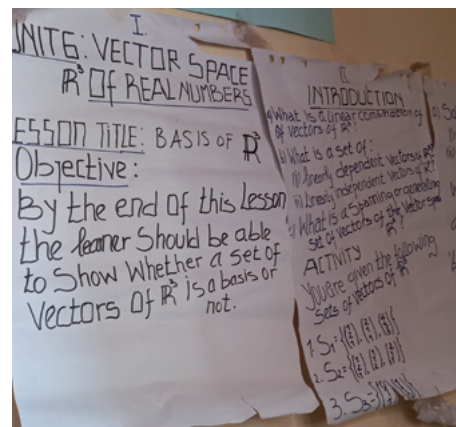 I
UNIT6: VECTOR SPACE
ℝ³ OF REAL NUMBERS
LESSON TITLE: BASIS OF ℝ³
Objective:
By the end of this Lesson
the learner Should be able
to Show Whether a set of
Vectors Of ℝ³ is a basis or
not.
II
INTRODUCTION
a) What is a linear combination of
of vectors of ℝ³?
b) What is a set of:
(i) linearly dependent vectors of ℝ³?
ii) linearly independent vectors of ℝ³?
c) What is a Spanning or generating
set of vectors of the Vector space
of ℝ³?
ACTIVITY
You are given the following
sets of vectors of ℝ³
1. S₁=
2. S₂=
3. S₃=